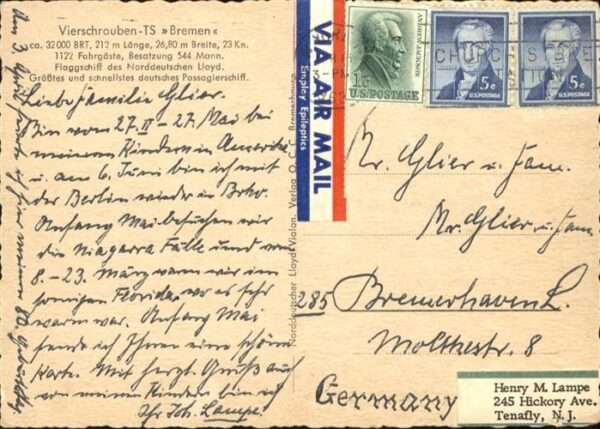 Vierschrauben-TS »Bremen«
ca. 32000 BRT, 212 m Länge, 26,80 m Breite, 23 Kn.
1122 Fahrgäste, Besatzung 544 Mann.
Flaggschiff des Norddeutschen Lloyd.
Größtes und schnellstes deutsches Passagierschiff.
Liebe Familie Glier.
Bin vom 27. II - 27. Mai bei
meinen Kindern in Amerika
u. am 6. Juni bin ich mit
der Berlin wieder in Brhv.
Anfang Mai besuchen wir
die Niagarra Fälle und vom
8. - 23. März waren wir im
sonnigen Florida, wo es sehr
warm war. Anfang Mai
sende ich Ihnen eine schöne
Karte. Mit herzl. Gruß auch
von meinen Kindern bin ich
Ihr Joh. Lampe.
am 3. April feierte ich hier meinen 80. Geburtstag
Norddeutscher Lloyd
Verlag O. C. C. Bremerhaven
VIA AIR MAIL
Employ Epileptics
ANDREW JACKSON
1c
U.S. POSTAGE
5c
U.S. POSTAGE
5c
U.S. POSTAGE
CHURCH
Mr. Glier u. Fam.
Mr. Glier u. Fam.
285 Bremerhaven L.
Moltkestr. 8
Germany
Henry M. Lampe
245 Hickory Ave.
Tenafly, N. J.